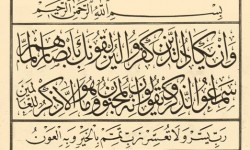 بسم الله الرحمن الرحيم
وان يكاد الذين كفروا ليزلقونك بابصارهم لما
سمعوا الذكر ويقولون انه لمجنون وما هو الا ذكر للعالمين
رب يسر ولا تعسر رب تمم بالخير وبه العون